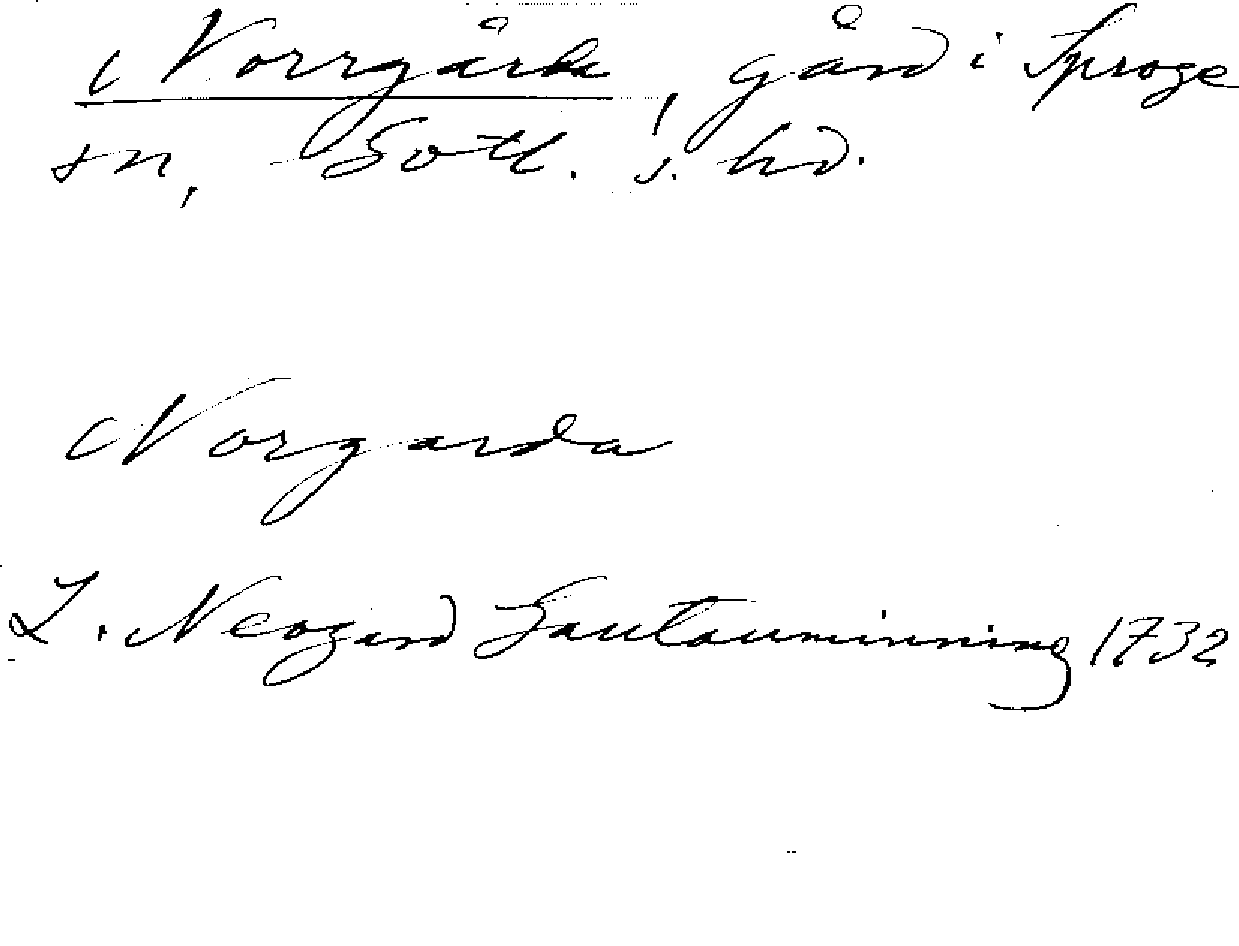 Norrgårda, gård i Sproge
sn, Gotl. s. hd.
Norgarda
L. Neogard Gautauminning 1732